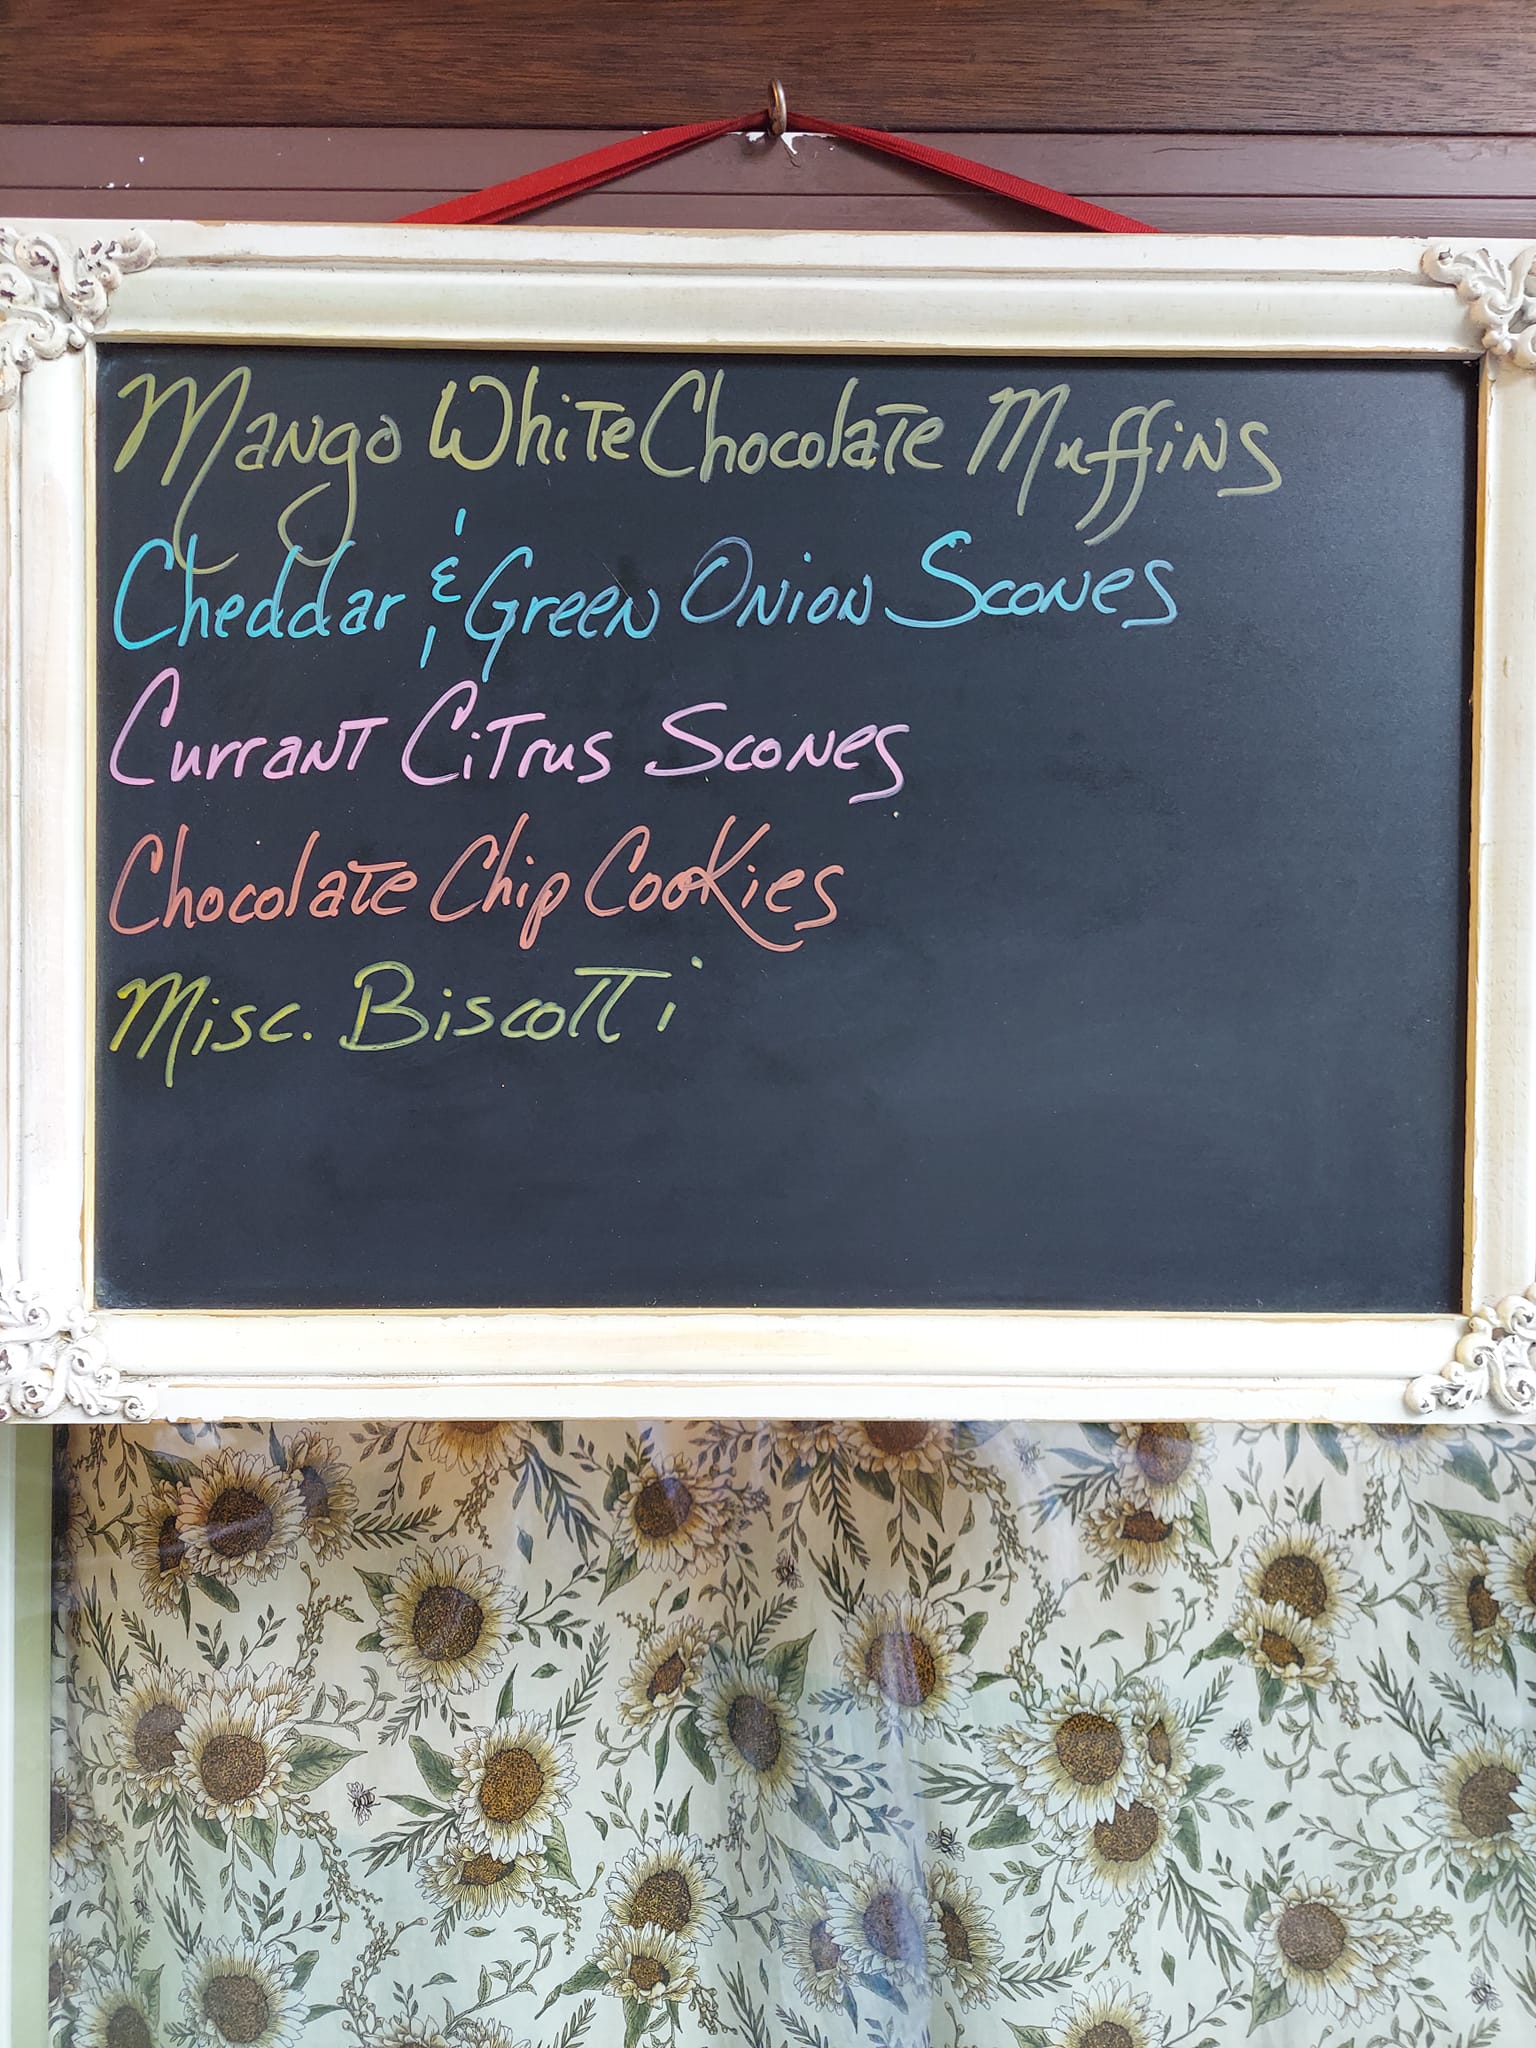 Mango White Chocolate Muffins
Cheddar & Green Onion Scones
Currant Citrus Scones
Chocolate Chip Cookies
Misc. Biscotti